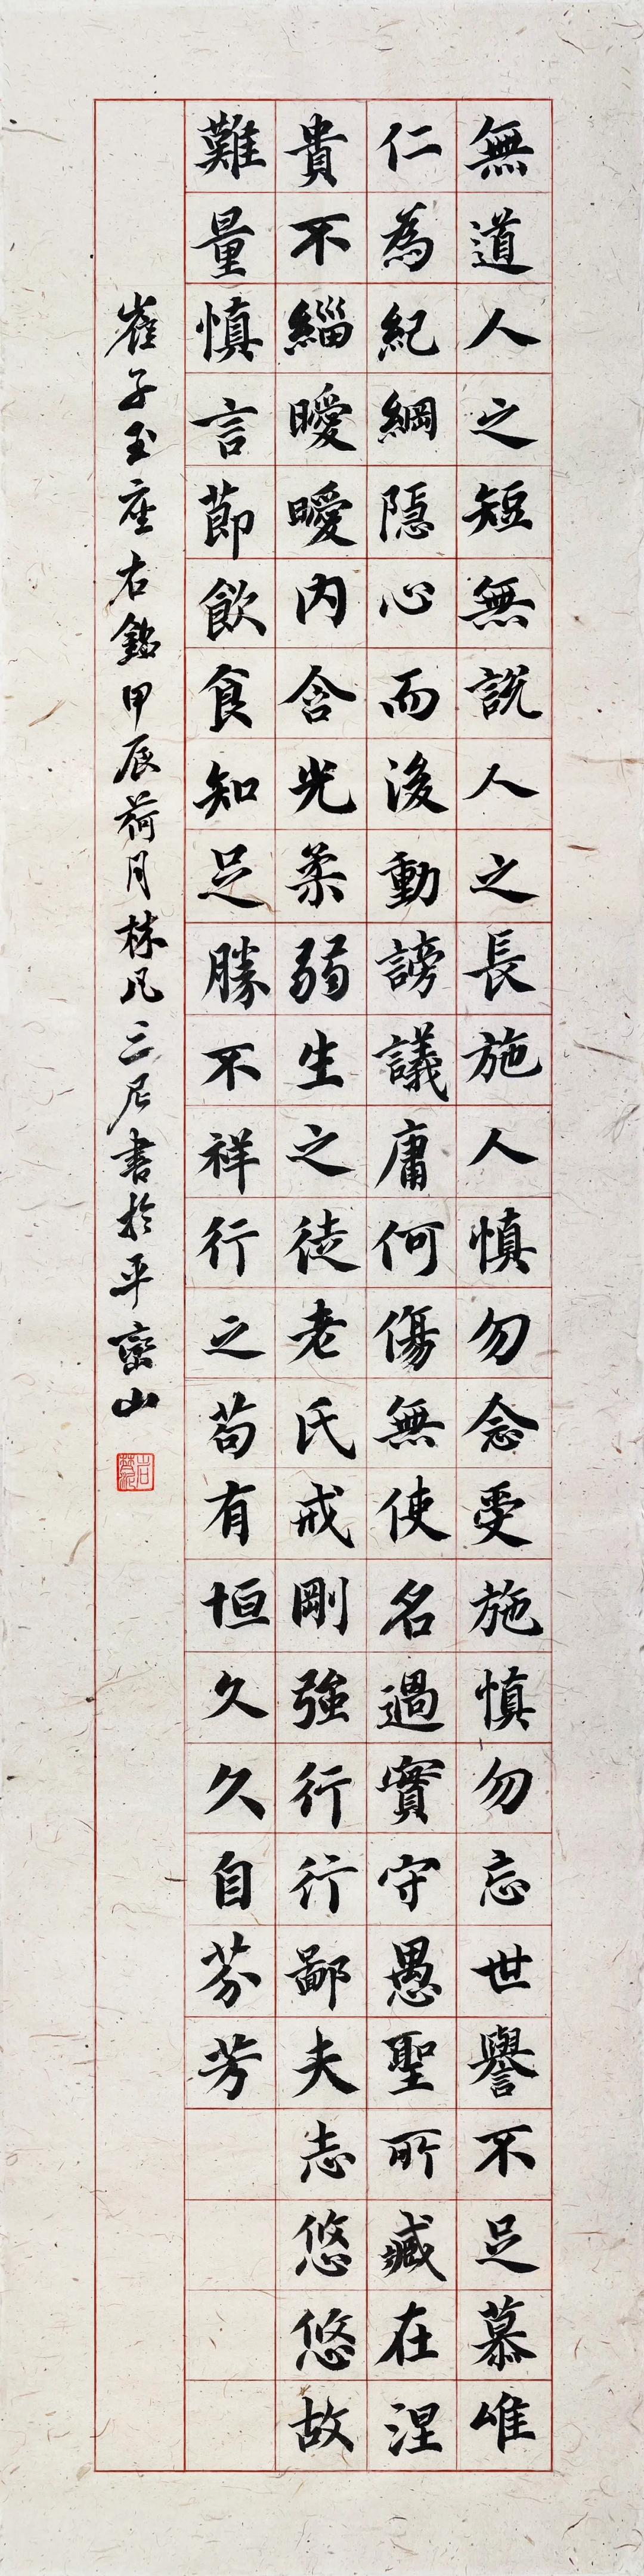 無道人之短無說人之長施人慎勿念受施慎勿忘世譽不足慕唯
仁為紀綱隱心而後動謗議庸何傷無使名過實守愚聖所臧在涅
貴不緇曖曖內含光柔弱生之徒老氏戒剛強行行鄙夫志悠悠故
難量慎言節飲食知足勝不祥行之苟有恒久久自芬芳
崔子玉座右銘甲辰荷月林凡三尼書於平巒山